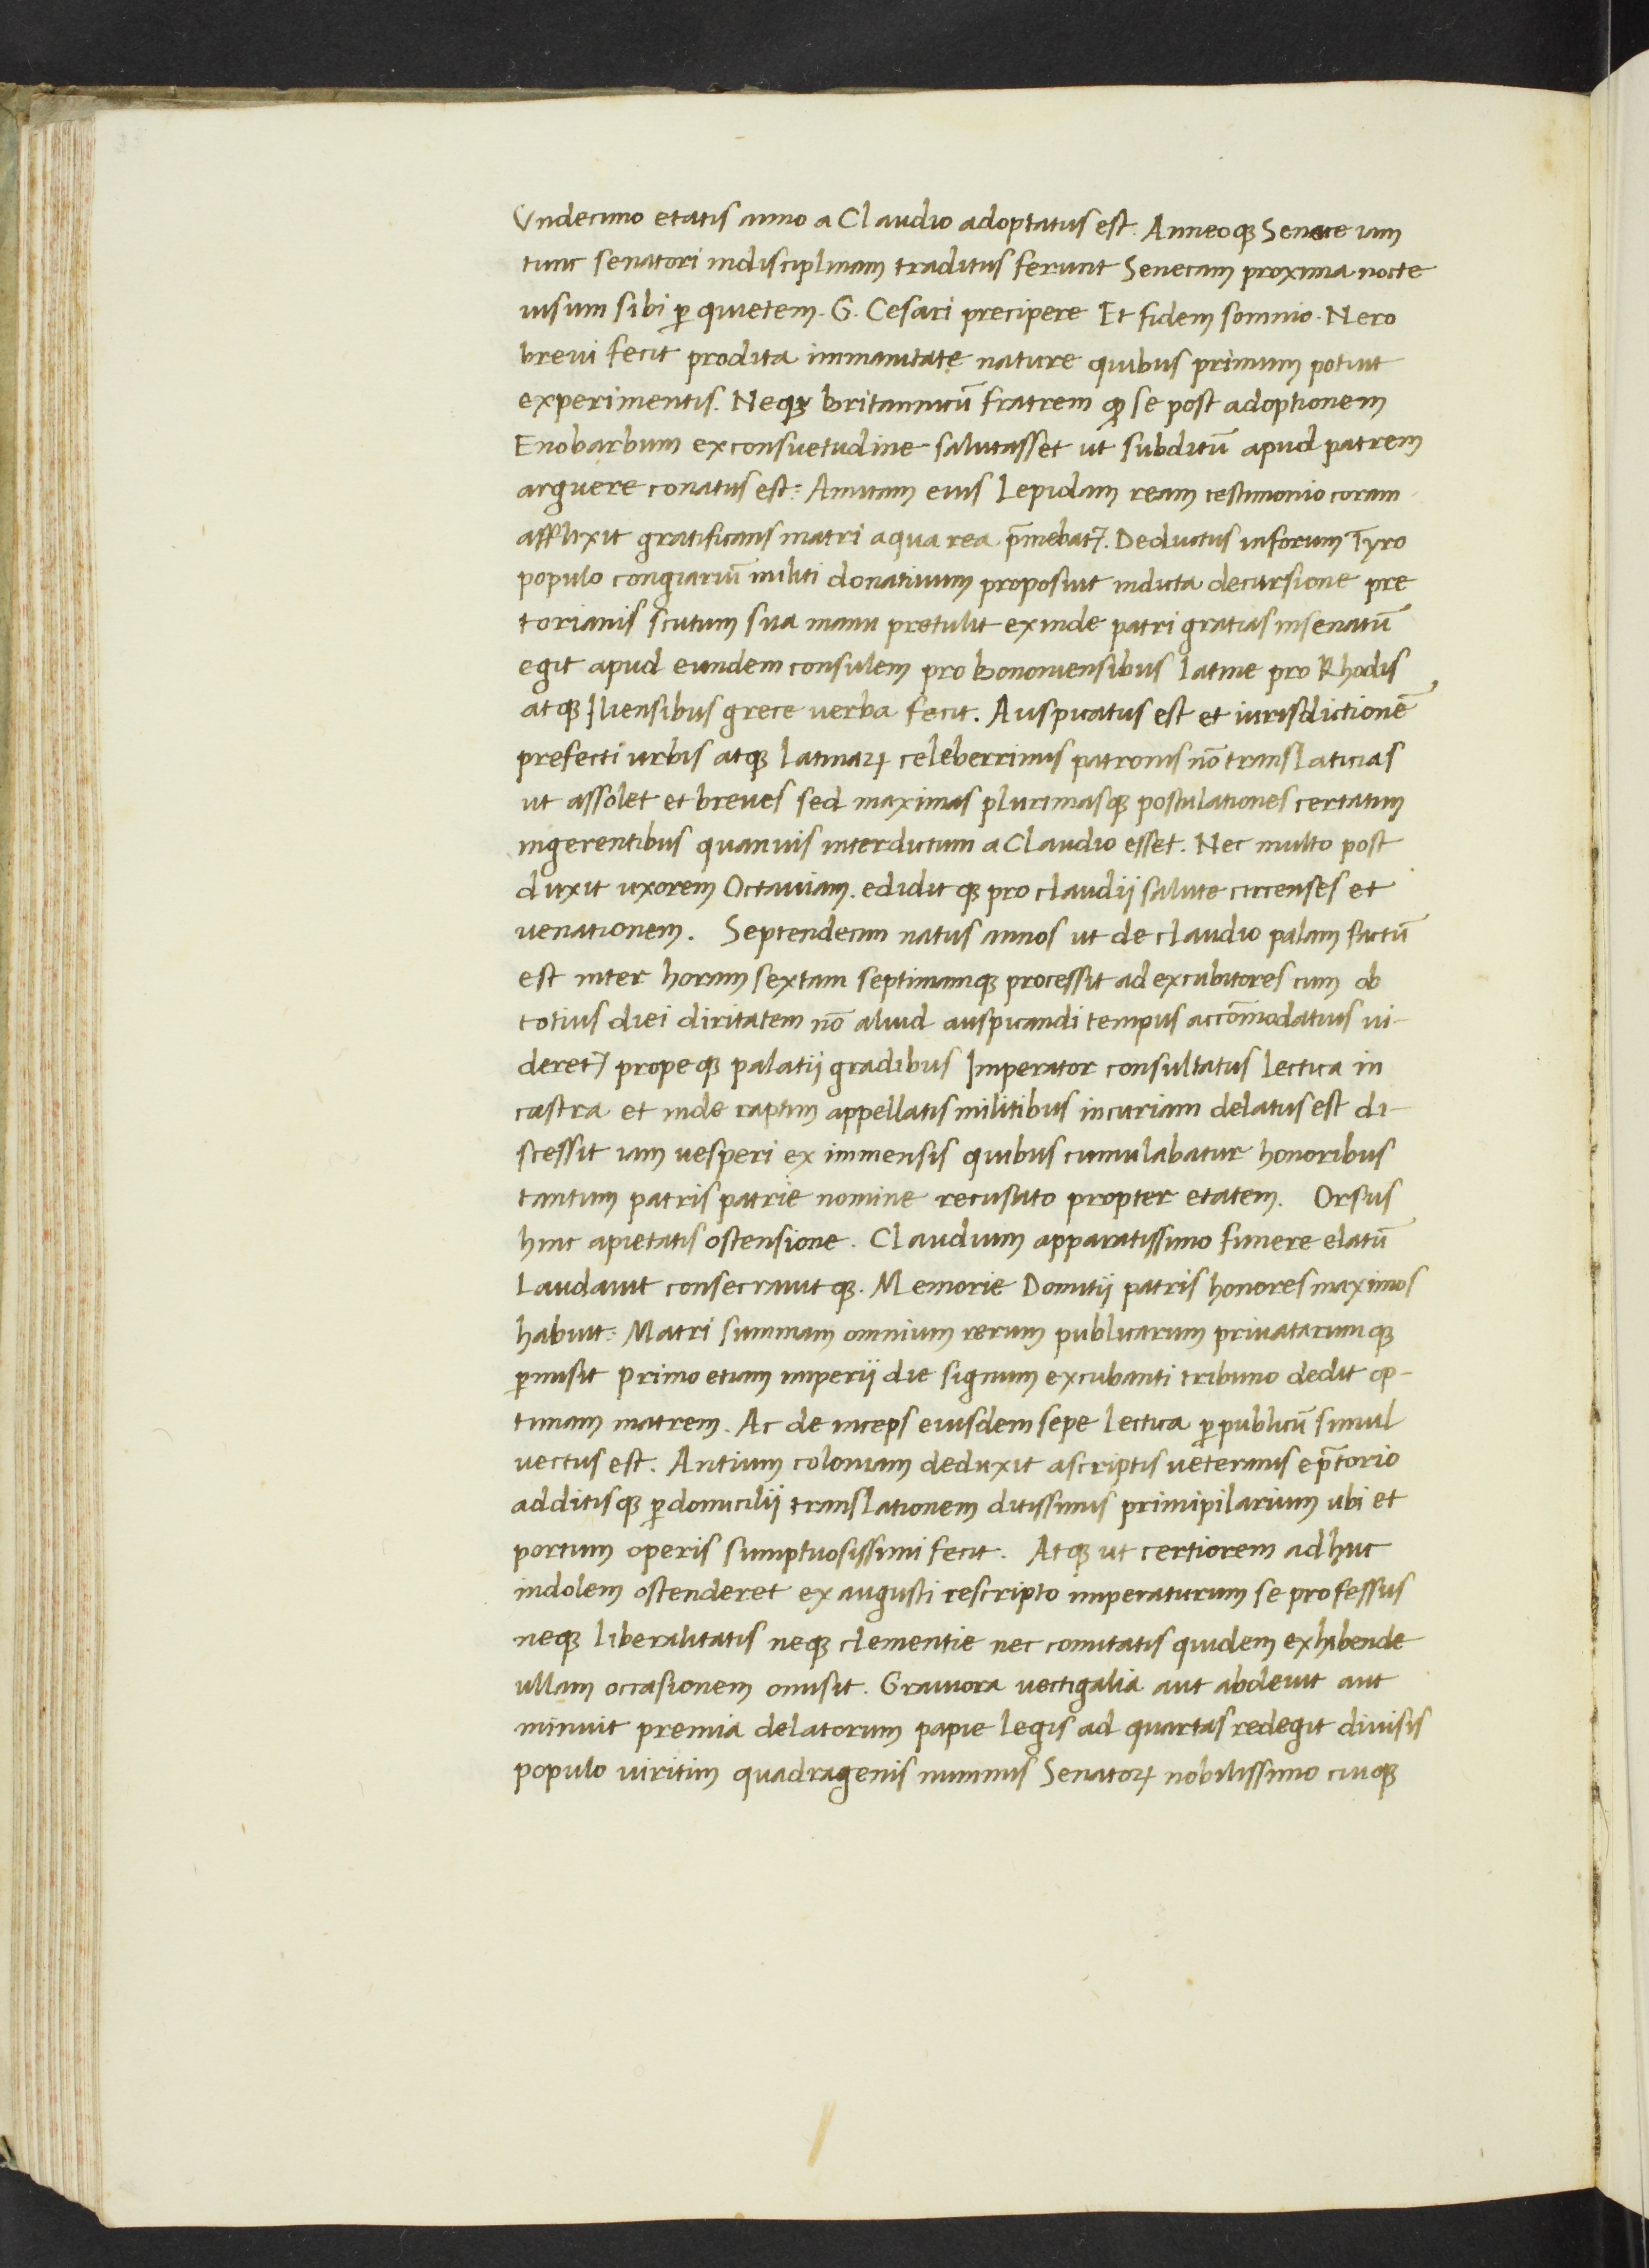 Vndecimo etatis anno a Claudio adoptatus est. Anneoqꝫ Senece iam
tunc senatori indisciplinam traditus ferunt Senecam proxima nocte
uisum sibi ꝑ quietem. G. Cesari precipere Et fidem somnio. Nero
breui fecit prodita immanitate nature quibus primum potuit
experimentis. Neqꝫ britannicū fratrem ꝙ se post adoptionem
Enobarbum exconsuetudine salutasset ut subditū apud patrem
arguere conatus est: Amitam eius Lepidam ream testimonio coram
afflixit gratificans matri aqua rea p̄mebat᷑. Deductus inforum Tyro
populo congiariū militi donatiuum proposuit indicta decursione pre
torianis scutum sua manu pretulit exinde patri gratias insenatū
egit apud eundem consulem pro bononiensibus latine pro Rhodis
atqꝫ Iliensibus grece uerba fecit. Auspicatus est et iurisdictionē
prefecti urbis atqꝫ latinaꝝ celeberrimis patronis nō translaticias
ut assolet et breues sed maximas plurimasqꝫ postulationes certatim
ingerentibus quanuis interdictum a Claudio esset. Nec multo post
duxit uxorem Octauiam. edidit qꝫ pro claudij salute circenses et
uenationem. Septendecim natus annos ut de claudio palam factū
est inter horam sextam septimamqꝫ processit ad excubitores cum ob
totius diei diritatem nō aliud auspicandi tempus accōmodatius ui-
deret᷑ prope qꝫ palatij gradibus Imperator consultatus lectica in
castra et inde raptim appellatis militibus incuriam delatus est di-
scessit iam uesperi ex immensis quibus cumulabatur honoribus
tantum patris patrie nomine recusato propter etatem. Orsus
hinc apietatis ostensione. Claudium apparatissimo funere elatū
Laudauit consecrauit qꝫ. Memorie Domitij patris honores maximos
habuit: Matri summam omnium rerum publicarum priuatarum qꝫ
ꝑmisit Primo etiam imperij die signum excubanti tribuno dedit op-
timam matrem. Ac de inceps eiusdem sepe lectica ꝑ publicū simul
uectus est. Antium coloniam deduxit ascriptis ueteranis ep̄torio
additisqꝫ ꝑ domicilij translationem ditissimis primipilarium ubi et
portum operis sumptuosissimi fecit. Atqꝫ ut certiorem adhuc
indolem ostenderet ex augusti rescripto imperaturum se professus
neqꝫ liberalitatis neqꝫ clementie nec comitatis quidem exhibende
ullam occasionem omisit. Grauiora uectigalia aut aboleuit aut
minuit premia delatorum papie legis ad quartas redegit diuisis
populo uiritim quadragenis nummis Senatoꝝ nobilissimo cuiqꝫ